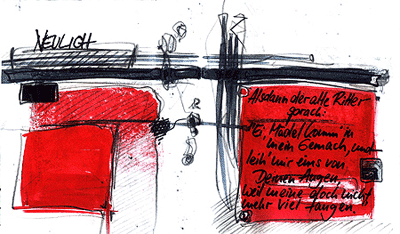 NEULICH
Als dann der alte Ritter
sprach:
"Ei, Madel komm' in
mein Gemach, und
leih' mir eins von
Deinen Augen
weil meine doch nicht
mehr viel taugen.